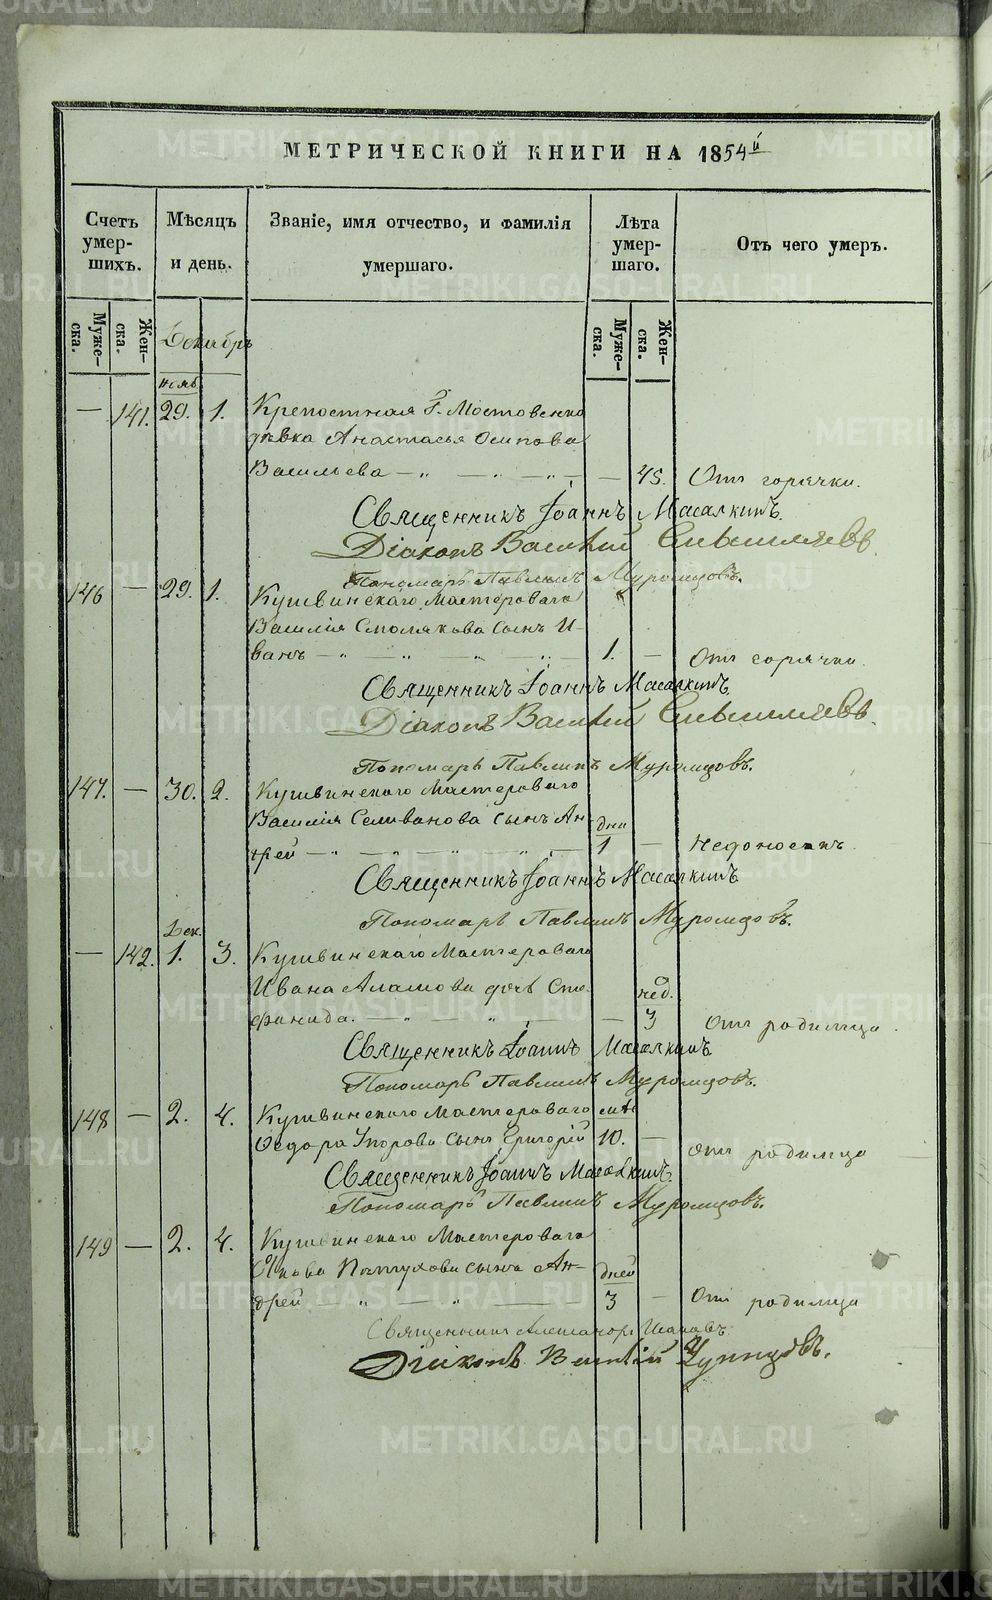 МЕТРИЧЕСКОЙ КНИГИ НА 1854й
Счетъ умер-шихъ.
Мѣсяцъ и день.
Званіе, имя отчество, и фамилія умершаго.
Лѣта умер-шаго.
Отъ чего умеръ.
Муже-ска.
Жен-ска.
Муже-ска.
Жен-ска.
Декабрь
Нояб.
— 141. 29. 1. Крепостная Г.
девка Анастасья Осипова
Васильева — " — " — 45. Отъ горячки.
Священникъ Іоаннъ Масалкинъ.
Діаконъ Василій
Пономарь Павлинъ Муромцовъ.
146 — 29. 1. Кушвинскаго Мастероваго
Василія Смолякова сынъ И-
ванъ — " — " — 1. — Отъ горячки.
Священникъ Іоаннъ Масалкинъ
Діаконъ Василій
Пономарь Павлинъ Муромцовъ.
147. — 30. 2. Кушвинскаго Мастероваго
Василія Селиванова сынъ Ан-
дни
дрей — " — " — 1 — Недоносокъ
Священникъ Іоаннъ Масалкинъ
Пономарь Павлинъ Муромцовъ.
Дек.
— 142. 1. 3. Кушвинскаго Мастероваго
Ивана дочь Сте-
нед.
фанида. — " — 3 Отъ родимца
Священникъ Іоаннъ Масалкинъ
Пономарь Павлинъ Муромцовъ.
148 — 2. 4. Кушвинскаго Мастероваго
Ѳедора сынъ Григорій 10. — Отъ родимца
Священникъ Іоаннъ Масалкинъ.
Пономарь Павлинъ Муромцовъ.
149 — 2. 4. Кушвинскаго Мастероваго
Якова Патухова сынъ Ан-
дней
дрей — " — " — 3 — Отъ родимца
Священникъ Александръ
Діаконъ Василій
METRIKI.GASO-URAL.RU